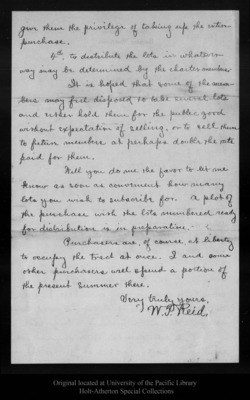 give them the privilege of taking up the entire
purchase.
4th, to distribute the lots in whatever
way may be determined by the charter members
It is hoped that some of the mem-
bers may feel disposed to take several lots
and either hold them for the public good
without expectation of selling, or to sell them
to future members at perhaps double the rate
paid for them.
Will you do me the favor to let me
know as soon as convenient how many
lots you wish to subscribe for. A plot of
the purchase with the lots numbered ready
for distribution is in preparation.
Purchasers are, of course at liberty
to occupy the tract at once. I and some
other purchasers will spend a portion of
the present summer there.
Very truly yours,
W. P. Reid,
Original located at University of the Pacific Library
Holt-Atherton Special Collections